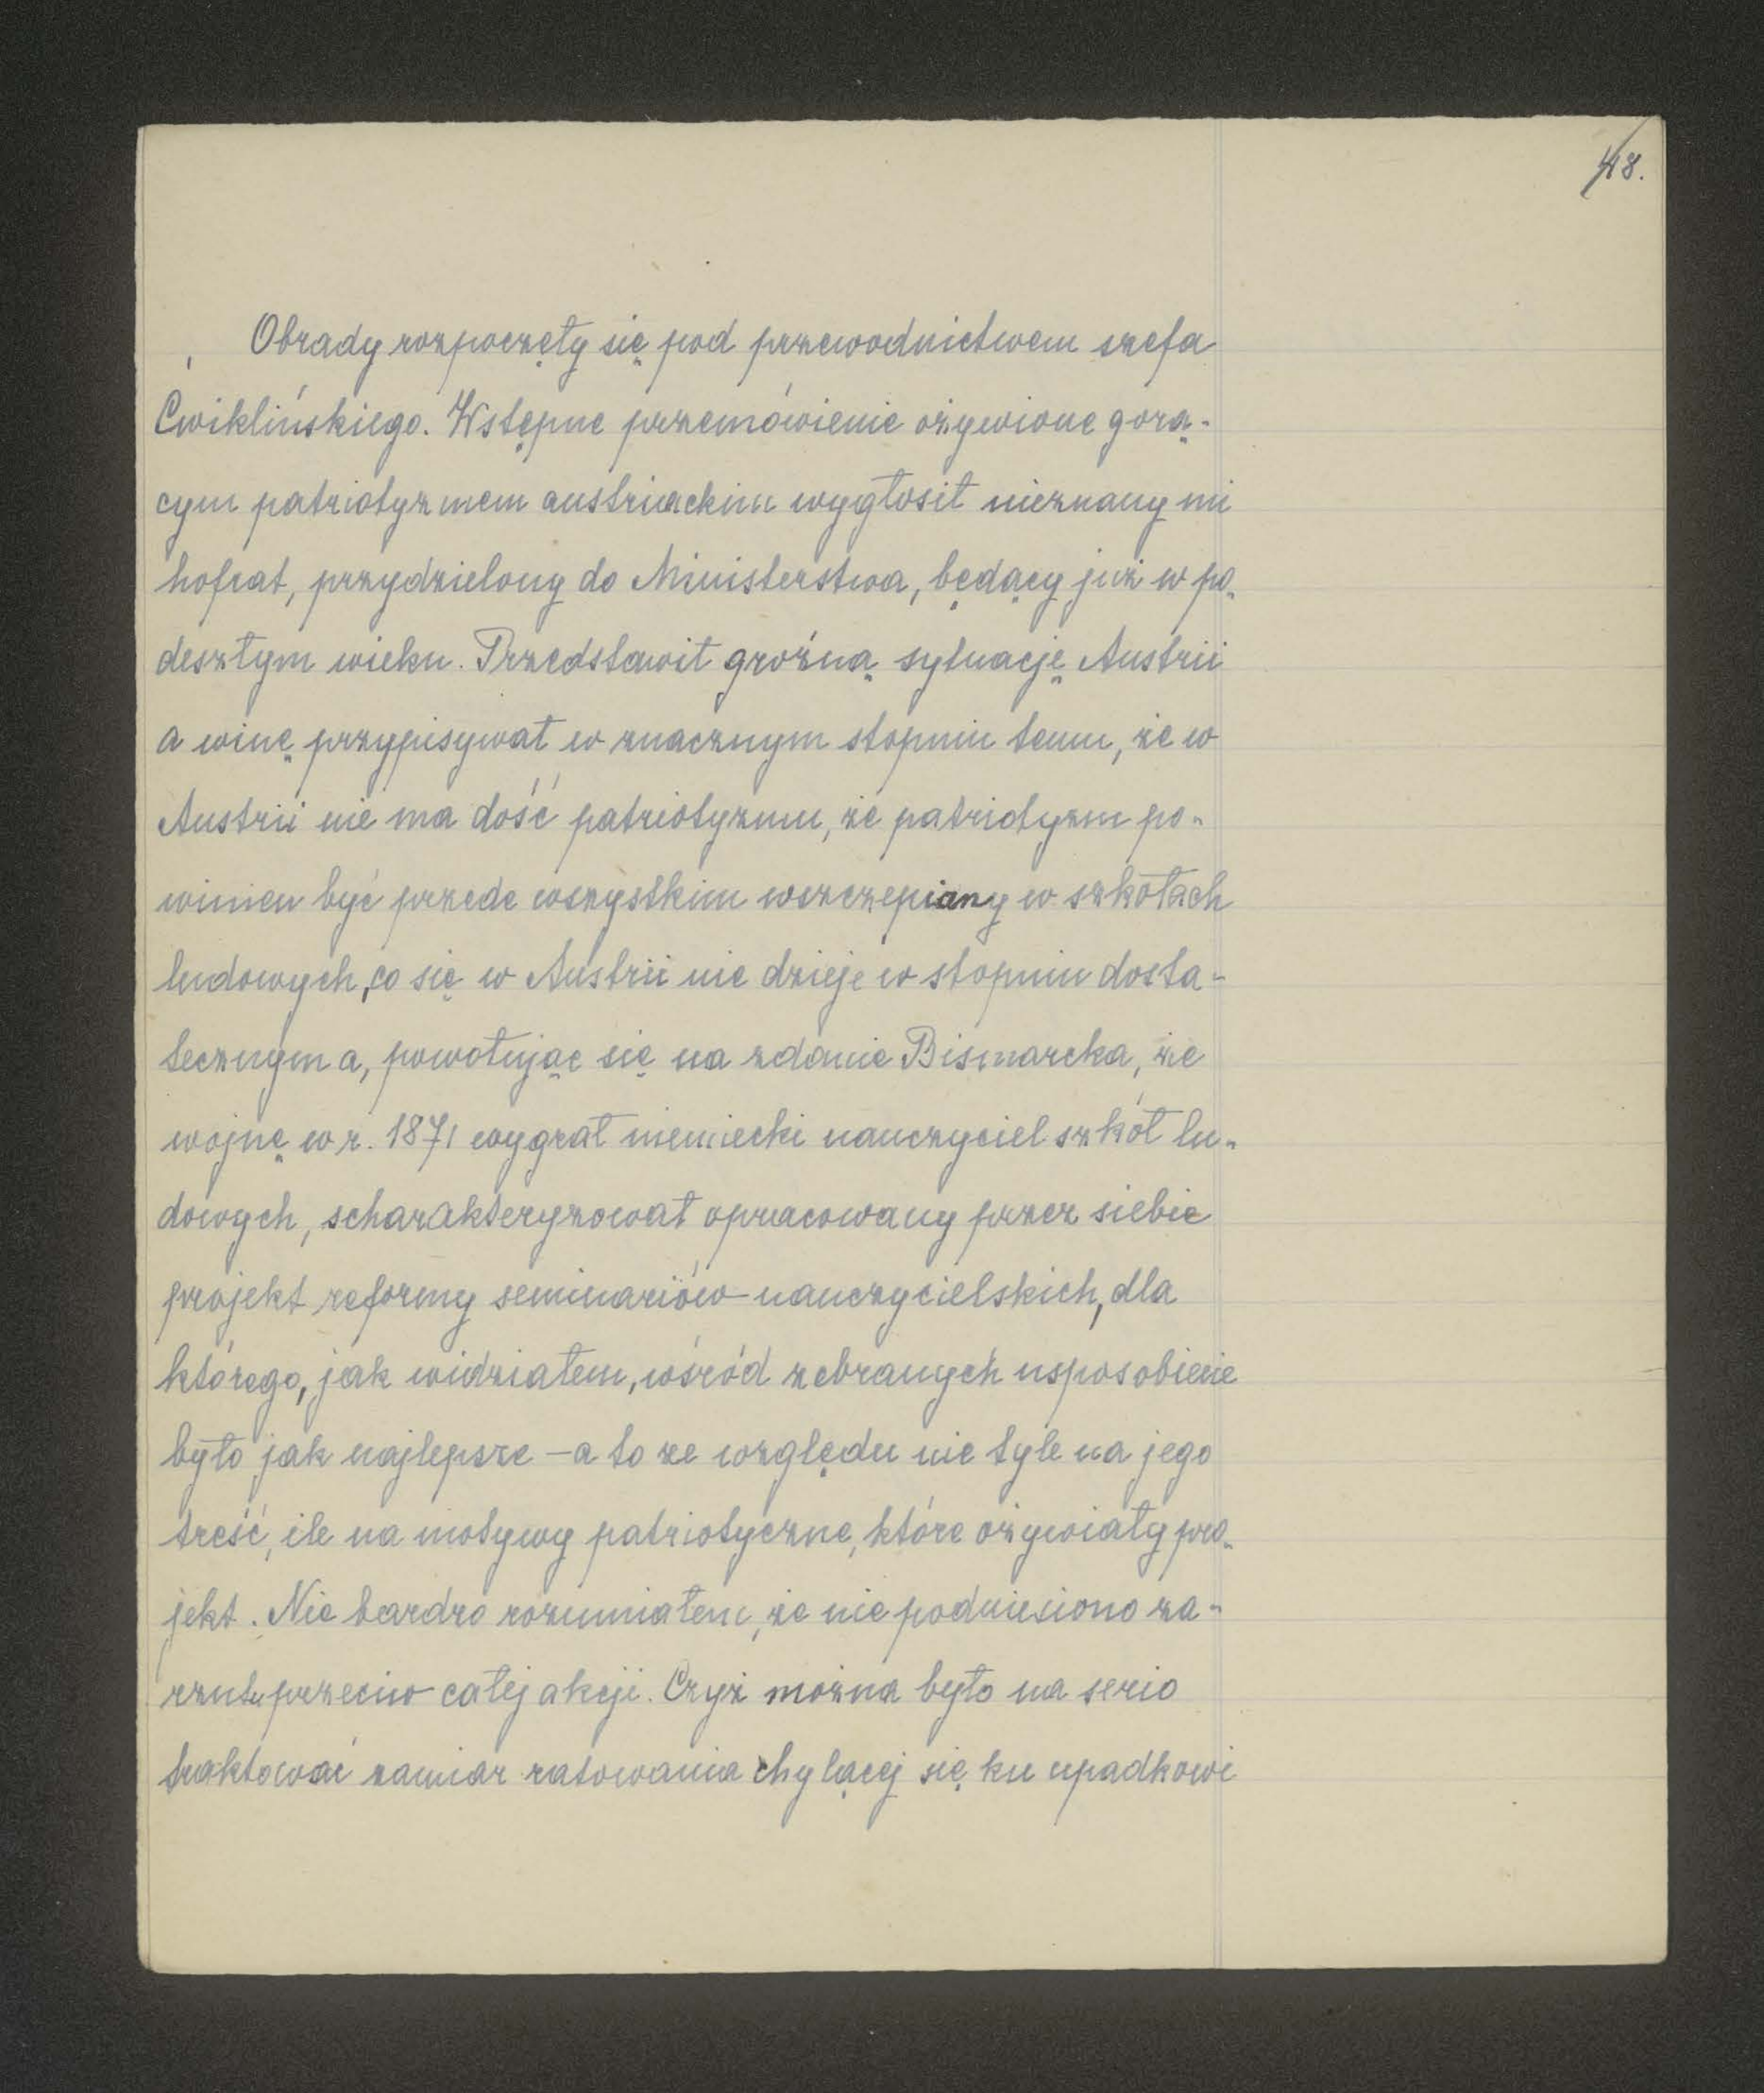 48.
Obrady rozpoczęły się pod przewodnictwem szefa
Ćwiklińskiego. Wstępne przemówienie ożywione gorą-
cym patriotyzmem austriackim wygłosił nieznany mi
hofrat, przydzielony do Ministerstwa, będący już w po-
deszłym wieku. Przedstawił groźną sytuację Austrii
a winę przypisywał w znacznym stopniu temu, że w
Austrii nie ma dość patriotyzmu, że patriotyzm po-
winien być przede wszystkim wszczepiany w szkołach
ludowych, co się w Austrii nie dzieje w stopniu dosta-
tecznym a, powołując się na zdanie Bismarcka, że
wojnę w r. 1871 wygrał niemiecki nauczyciel szkół lu-
dowych, scharakteryzował opracowany przez siebie
projekt reformy seminariów nauczycielskich, dla
którego, jak widziałem, wśród zebranych usposobienie
było jak najlepsze – a to ze względu nie tyle na jego
treść, ile na motywy patriotyczne, które ożywiały pro-
jekt. Nie bardzo rozumiałem, że nie podniesiono za-
rzutu przeciw całej akcji. Czyż można było na serio
traktować zamiar ratowania chylącej się ku upadkowi